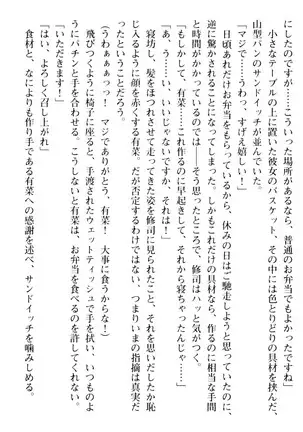 にしたのだが……こういった場所であるなら、普通のお弁当でもよかった。
小さなテーブルの上に置いた彼女のバスケット、その中には色とりどりの具材を挟んだ、
山型パンのサンドイッチが並んでいた。
「マジで……うわっ、すげえ嬉しい！」
日頃あれだけお弁当をもらっているから、休みの日はご馳走しようと思っていたのに、
逆に驚かされることになってしまった。しかもこれだけの具材なら、作るのに相当な手間
と時間がかかっているのでは——そう思ったところで、修司にはハッと気がつく。
「もしかして、有菜……これ作るのに早起きして、それから寝ちゃったんじゃ……」
「そ、それは……い、いいじゃないですか、それは……」
寝坊し、髪をほつれさせて走ってきた姿を修司に見られたこと、それを思いだしたか恥
じ入るように顔を赤くする有菜。だが否定するわけではない、つまりいまの指摘は真実だ
ったということだろう。
（うわぁぁぁっっ！　マジでありがとう、有菜！　大事に食うからな！）
飛びつくように椅子に座ると、手渡されたウェットティッシュで手を拭い、いつものよ
うにパチンと手を合わせる。こうしないと有菜は、お弁当を食べるのを許してくれない。
「いただきます！」
「はい、よろしく召し上がれ」
食材と、なにより作り手である有菜への感謝を述べ、サンドイッチを噛みしめる。